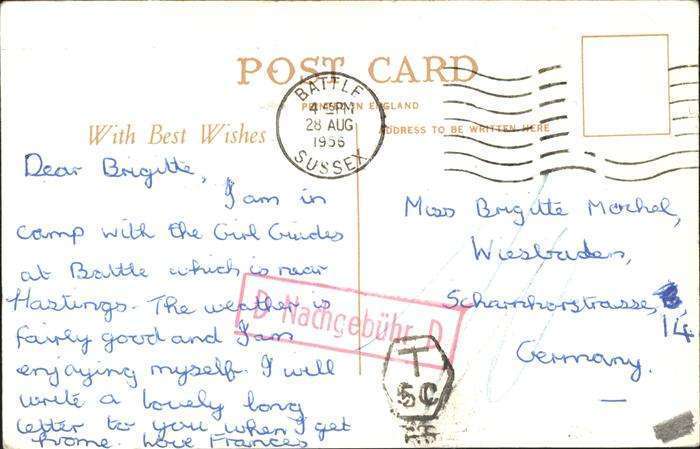 POST CARD
PRINTED IN ENGLAND
With Best Wishes
ADDRESS TO BE WRITTEN HERE
BATTLE
4-5PM
28 AUG
1956
SUSSEX
Dear Brigitte,
I am in
camp with the Girl Guides
at Battle which is near
Hastings. The weather is
fairly good and I am
enjoying myself. I will
write a lovely long
letter to you when I get
home. Love Frances
Miss Brigitte Morhel,
Wiesbaden,
Scharnhorstrasse,
14
Germany.
D Nachgebühr D
T
5C